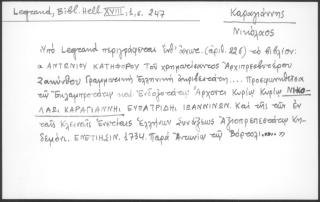 Legrand, Bibl. Hell. XVIII, 1, σ. 247
Καραγιάννης
Νικόλαος
Ὑπὸ Legrand περιγράφεται ὑπ' (ἀριθ. 226) τὸ βιβλίον:
α ΑΝΤΩΝΙΟΥ ΚΑΤΗΦΟΡΟΥ τοῦ χρηματίσαντος Ἀρχιπρεσβυτέρου
Ζακύνθου Γραμματικὴ Ἑλληνικὴ ἀκριβεστάτη... Προσφωνηθεῖσα
τῷ Ἐκλαμπροτάτῳ καὶ Ἐνδοξοτάτῳ Ἄρχοντι Κυρίῳ Κυρίῳ ΝΙΚΟ-
ΛΑῼ ΚΑΡΑΓΙΑΝΝΗ, ΕΥΠΑΤΡΙΔΗ ΙΩΑΝΝΙΝΩΝ. Καὶ τῆς τῶν ἐν
ταῖς Κλειναῖς Ἑνετίαις Ἑλλήνων Συνάξεως Ἀξιοπρεπεστάτῳ Κη-
δεμόνι. ΕΝΕΤΙΗΣΙΝ. 1734. Παρὰ Ἀντωνίῳ τῷ Βόρτολι